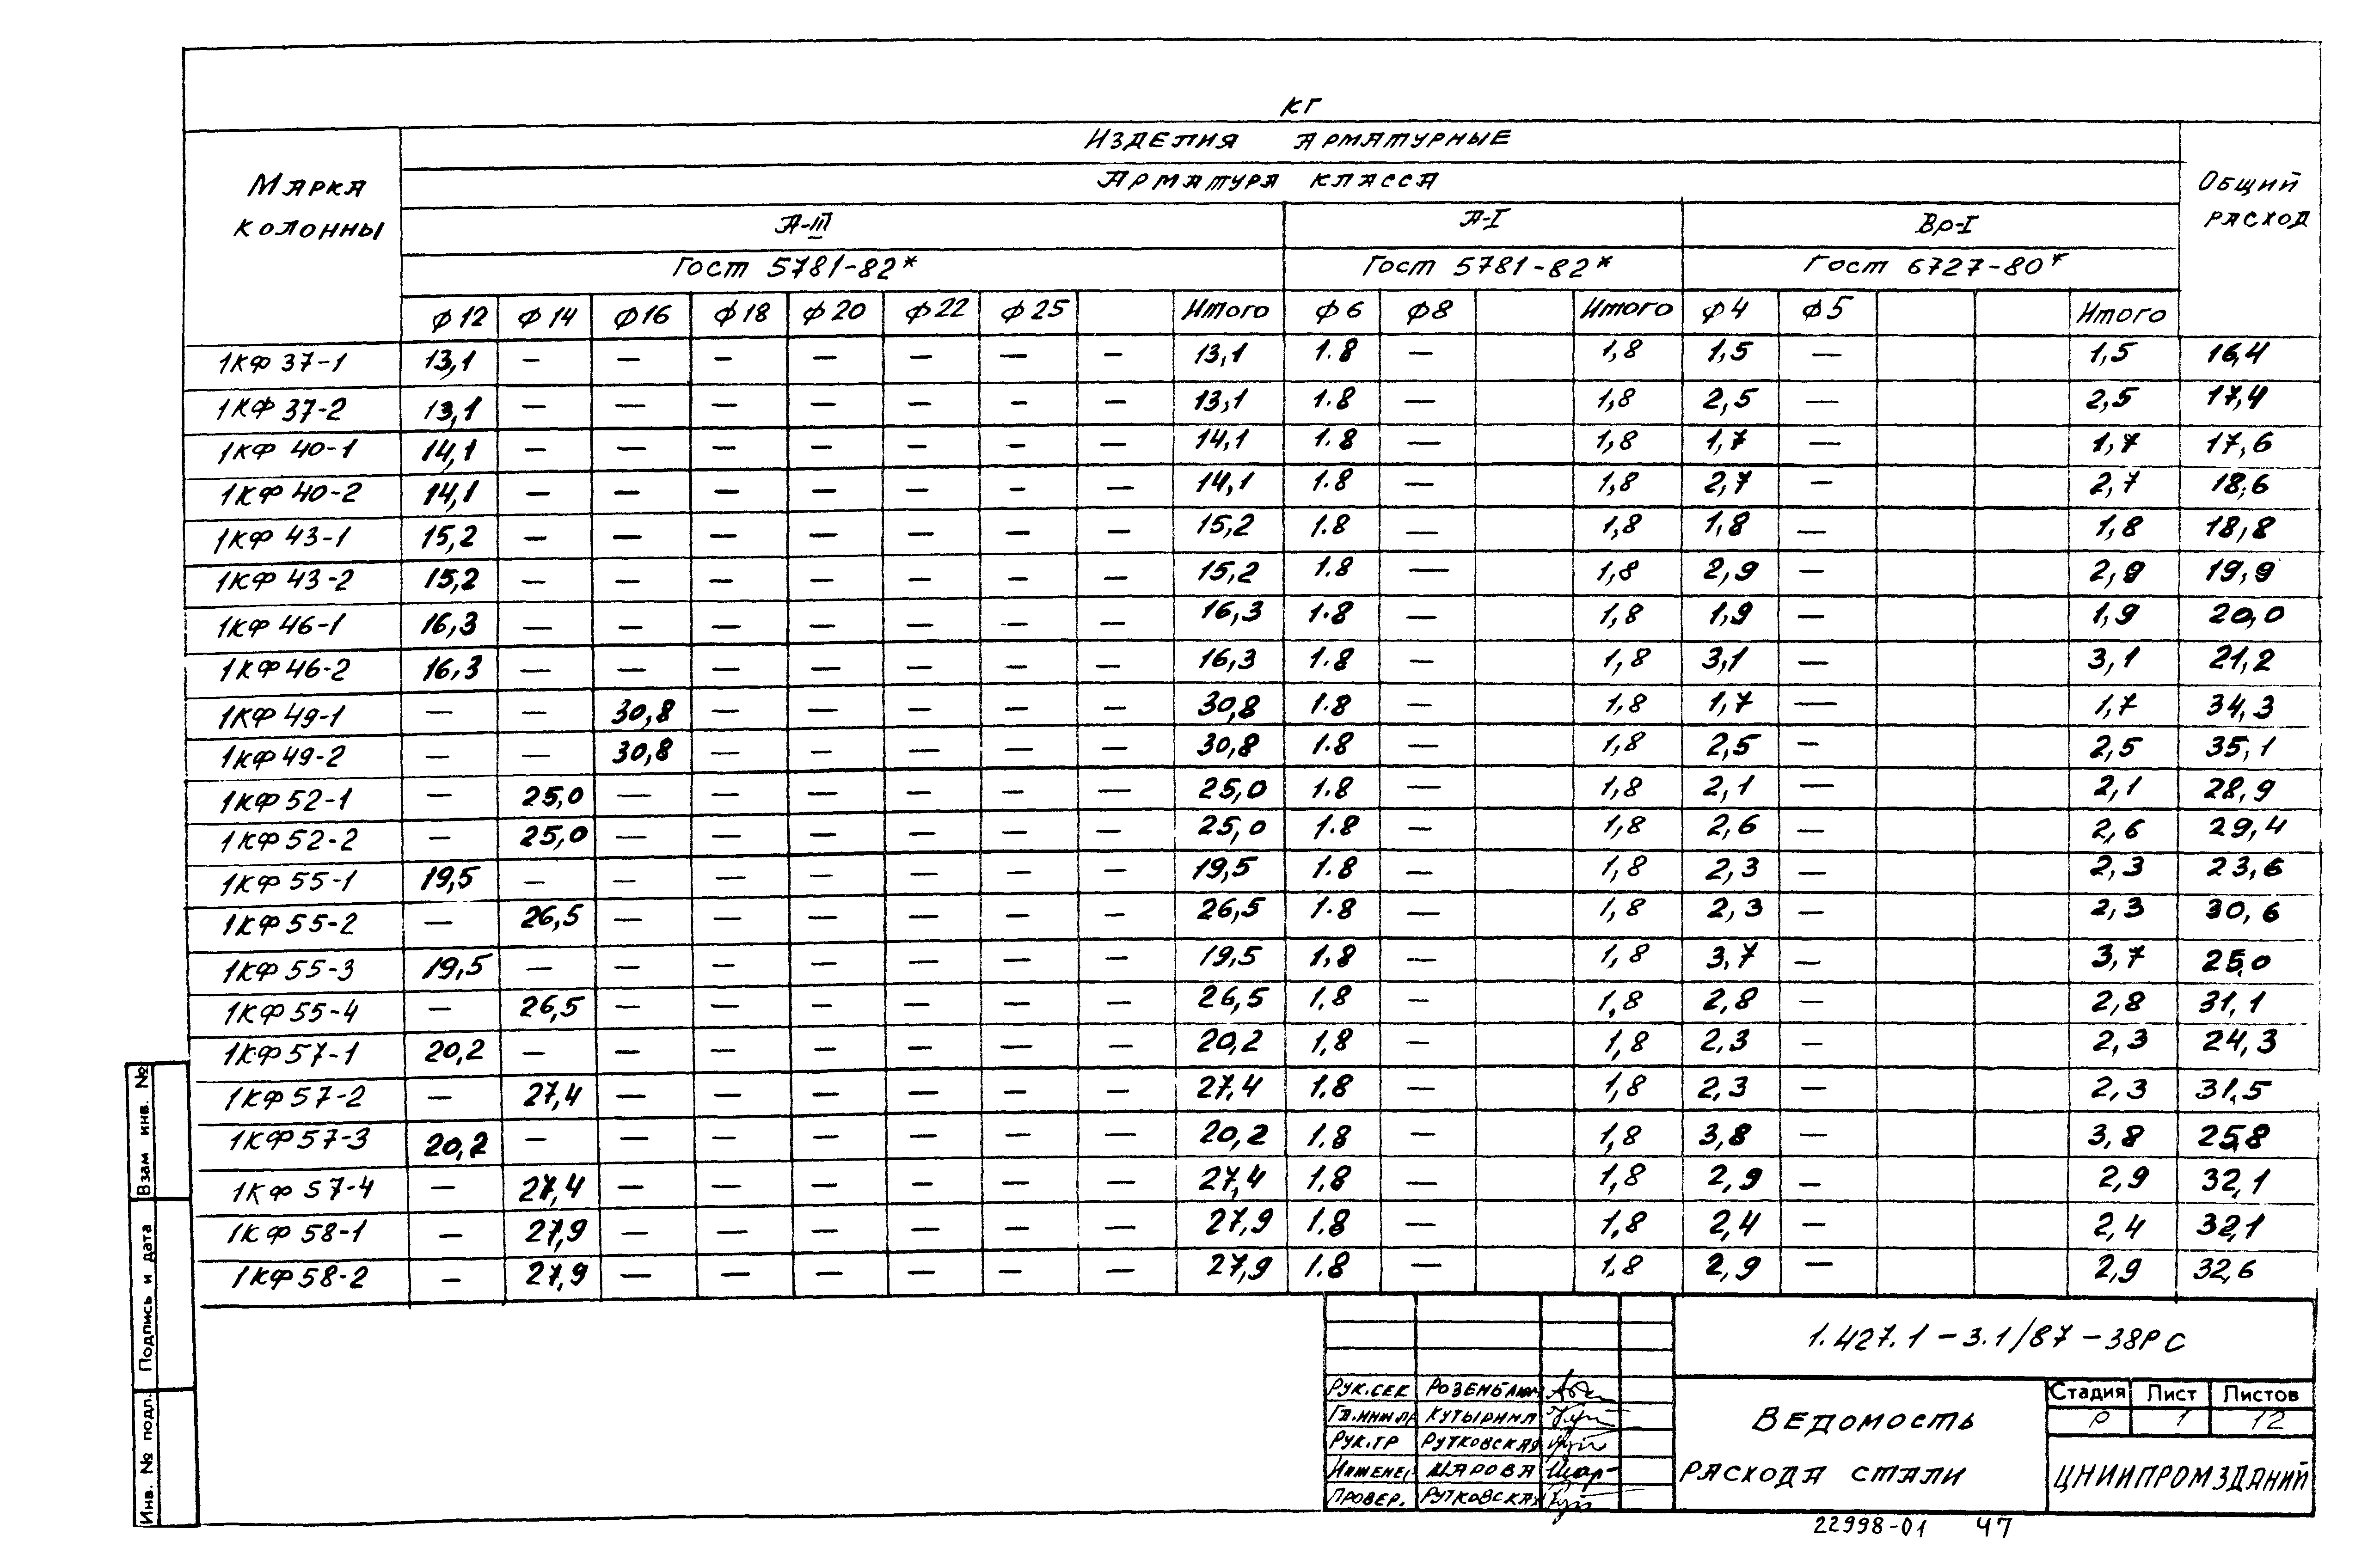 кг
Марка колонны Изделия арматурные Общий расход
Арматура класса
А-III А-I Вр-I
Гост 5781-82* Гост 5781-82* Гост 6727-80*
ф12 ф14 ф16 ф18 ф20 ф22 ф25 Итого ф6 ф8 Итого ф4 ф5 Итого
1КФ 37-1 13,1 — — — — — — — 13,1 1.8 — 1,8 1,5 — 1,5 16,4
1КФ 37-2 13,1 — — — — — — — 13,1 1.8 — 1,8 2,5 — 2,5 17,4
1КФ 40-1 14,1 — — — — — — — 14,1 1.8 — 1,8 1,7 — 1,7 17,6
1КФ 40-2 14,1 — — — — — — — 14,1 1.8 — 1,8 2,7 — 2,7 18,6
1КФ 43-1 15,2 — — — — — — — 15,2 1.8 — 1,8 1,8 — 1,8 18,8
1КФ 43-2 15,2 — — — — — — — 15,2 1.8 — 1,8 2,9 — 2,9 19,9
1КФ 46-1 16,3 — — — — — — — 16,3 1.8 — 1,8 1,9 — 1,9 20,0
1КФ 46-2 16,3 — — — — — — — 16,3 1.8 — 1,8 3,1 — 3,1 21,2
1КФ 49-1 — — 30,8 — — — — — 30,8 1.8 — 1,8 1,7 — 1,7 34,3
1КФ 49-2 — — 30,8 — — — — — 30,8 1.8 — 1,8 2,5 — 2,5 35,1
1КФ 52-1 — 25,0 — — — — — — 25,0 1.8 — 1,8 2,1 — 2,1 28,9
1КФ 52-2 — 25,0 — — — — — — 25,0 1.8 — 1,8 2,6 — 2,6 29,4
1КФ 55-1 19,5 — — — — — — — 19,5 1.8 — 1,8 2,3 — 2,3 23,6
1КФ 55-2 — 26,5 — — — — — — 26,5 1.8 — 1,8 2,3 — 2,3 30,6
1КФ 55-3 19,5 — — — — — — — 19,5 1,8 — 1,8 3,7 — 3,7 25,0
1КФ 55-4 — 26,5 — — — — — — 26,5 1,8 — 1,8 2,8 — 2,8 31,1
1КФ 57-1 20,2 — — — — — — — 20,2 1,8 — 1,8 2,3 — 2,3 24,3
1КФ 57-2 — 27,4 — — — — — — 27,4 1.8 — 1,8 2,3 — 2,3 31,5
1КФ 57-3 20,2 — — — — — — — 20,2 1.8 — 1,8 3,8 — 3,8 25,8
1КФ 57-4 — 27,4 — — — — — — 27,4 1.8 — 1,8 2,9 — 2,9 32,1
1КФ 58-1 — 27,9 — — — — — — 27,9 1.8 — 1,8 2,4 — 2,4 32,1
1КФ 58-2 — 27,9 — — — — — — 27,9 1.8 — 1.8 2,9 — 2,9 32,6
Взам инв. №
Подпись и дата
Инв. № подл.
1.427.1-3.1/87-38РС
Рук.сек Розенблюм
Гл.инж.пр Кутырина
Рук.гр Рутковская
Инженер Шарова
Провер. Рутковская
Ведомость
расхода стали
Стадия Лист Листов
Р 1 12
ЦНИИПРОМЗДАНИЙ
22998-01 47